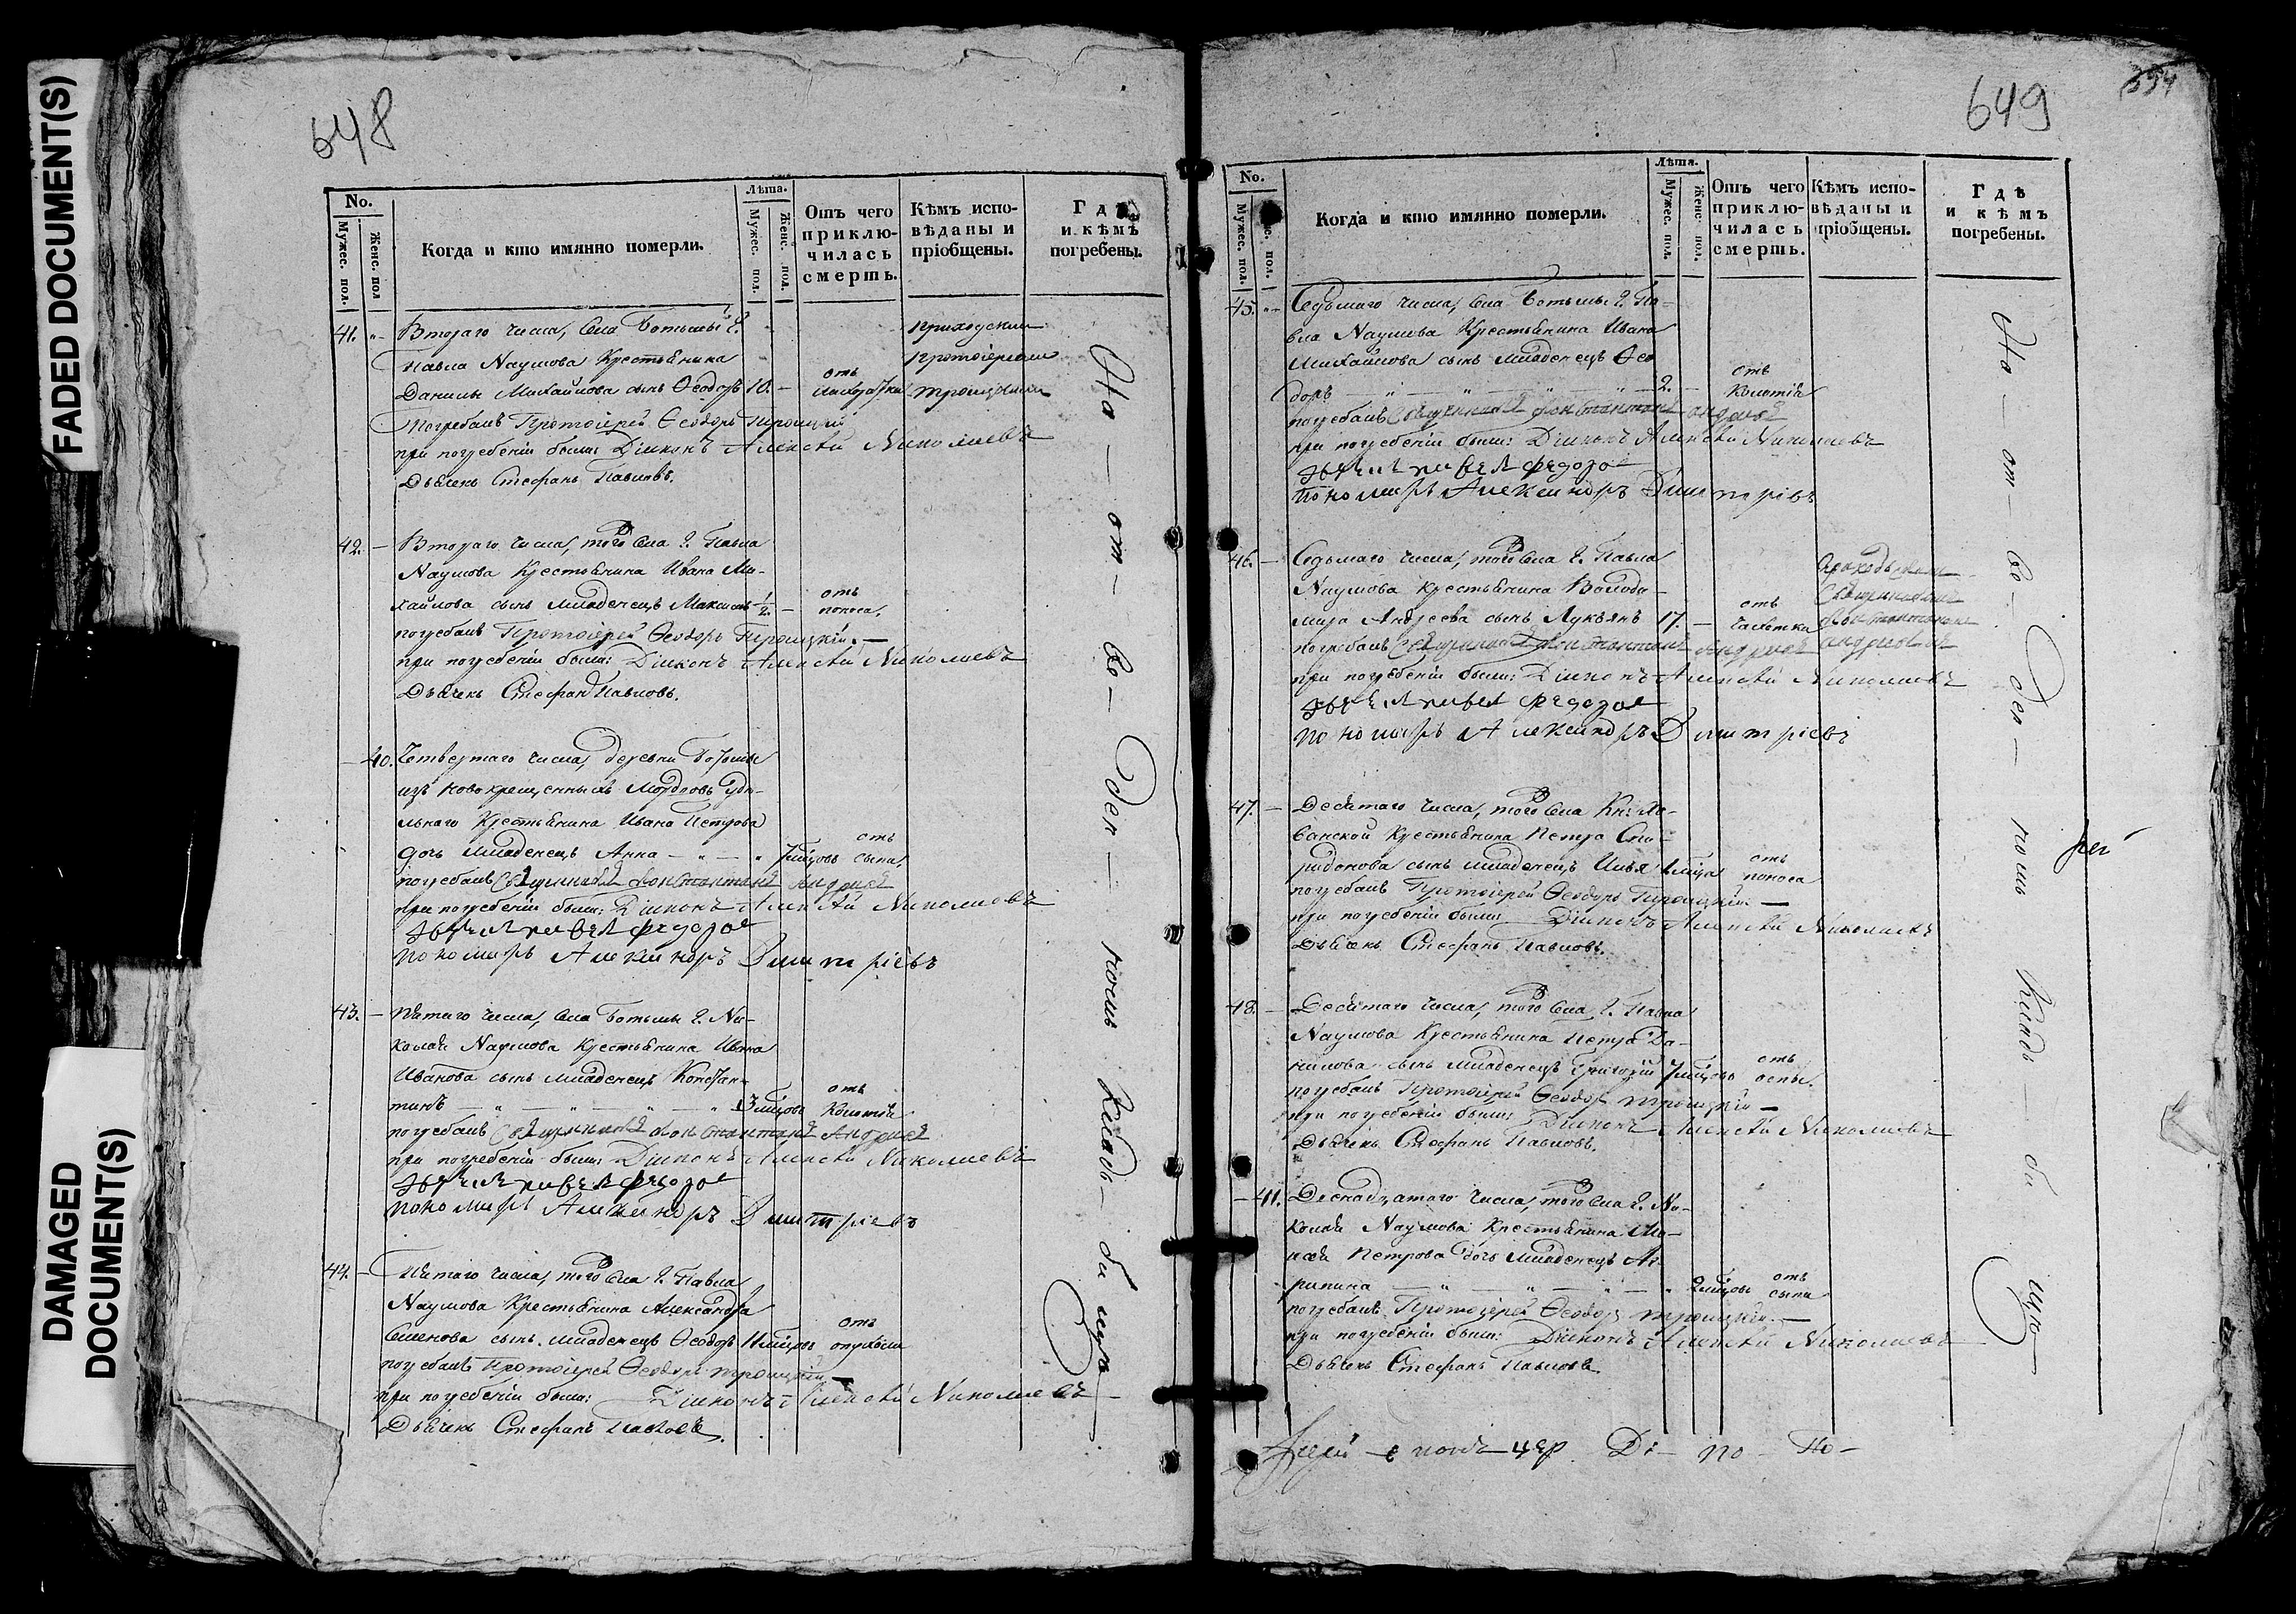 FADED DOCUMENT(S)
DAMAGED
DOCUMENT(S)
648
No.
Мужес. пол.
Женс. пол
Когда и кто имянно померли.
Лѣта.
Мужес. пол.
Женс. пол.
Отъ чего
приклю-
чилась
смерть.
Кѣмъ испо-
вѣданы и
пріобщены.
Гдѣ
и кѣмъ
погребены.
41. Втораго числа, села Ботьмы Г.
Павла Наумова Крестьянина
Данилы Михайлова сынъ Ѳеодоръ 10. отъ лихорадки
приходскимъ
протоіереемъ
троицкимъ
Погребалъ Протоіерей Ѳеодоръ Троицкій
при погребеніи были: Діяконъ Алексѣй Николаевъ
Дьячекъ Стефанъ Павловъ.
42. Втораго числа, того села Г. Павла
Наумова Крестьянина Ивана Ми-
хайлова сынъ младенецъ Максимъ 1/2. отъ поноса.
погребалъ Протоіерей Ѳеодоръ Троицкій.
при погребеніи были: Діяконъ Алексѣй Николаевъ
Дьячекъ Стефанъ Павловъ.
40. Четвертаго числа, деревни
изъ новокрещенныхъ Мордовъ Удѣ-
льнаго Крестьянина Ивана Петрова
дочь младенецъ Анна 7 мѣсцовъ отъ сыпи
погребалъ Священникъ Константинъ Андреевъ
при погребеніи были: Діяконъ Алексѣй Николаевъ
федоровъ
пономарь Александръ Дмитріевъ
43. Пятаго числа, села Ботьмы Г. Ни-
колая Наумова Крестьянина Ивана
Иванова сынъ младенецъ Констан-
тинъ 3 мѣсцовъ отъ колотія
погребалъ Священникъ Константинъ Андреевъ
при погребеніи были: Діяконъ Алексѣй Николаевъ
федоровъ
пономарь Александръ Дмитріевъ
44. Пятаго числа, того села Г. Павла
Наумова Крестьянина Александра
Семенова сынъ младенецъ Ѳеодоръ 11 мѣсцовъ отъ опухоли
погребалъ Протоіерей Ѳеодоръ троицкій
при погребеніи были: Діяконъ Алексѣй Николаевъ
Дьячекъ Стефанъ Павловъ.
На — от — во — ден — номъ кладь — би щѣ
649
354
No.
Мужес. пол.
Женс. пол.
Когда и кто имянно померли.
Лѣта.
Мужес. пол.
Женс. пол.
Отъ чего
приклю-
чилась
смерть.
Кѣмъ испо-
вѣданы и
пріобщены.
Гдѣ
и кѣмъ
погребены.
45. Седьмаго числа, села Ботьмы Г. Па-
вла Наумова Крестьянина Ивана
Михайлова сынъ младенецъ Ѳео
доръ 2. отъ колотія
погребалъ Священникъ Константинъ Андреевъ
при погребеніи были: Діяконъ Алексѣй Николаевъ
федоровъ
пономарь Александръ Дмитріевъ
46. Седьмаго числа, того села Г. Павла
Наумова крестьянина Володи-
мира Андреева сынъ Лукьянъ 17. отъ чахотки
Приходскимъ
Священникомъ
Константиномъ
Андреевымъ
погребалъ Священникъ Константинъ Андреевъ
при погребеніи были: Діяконъ Алексѣй Николаевъ
федоровъ
пономарь Александръ Дмитріевъ
47. Десятаго числа, того села Кн: Хо-
ванской Крестьянина Петра Спи-
ридонова сынъ младенецъ Илья отъ поноса
погребалъ Протоіерей Ѳеодоръ Троицкій
при погребеніи были: Діяконъ Алексѣй Николаевъ
Дьячекъ Стефанъ Павловъ.
48. Десятаго числа, того села Г. Павла
Наумова Крестьянина Петра Да-
нилова сынъ младенецъ Григорій 7 мѣсцовъ отъ оспы.
погребалъ Протоіерей Ѳеодоръ троицкій
при погребеніи были: Діяконъ Алексѣй Николаевъ
Дьячекъ Стефанъ Павловъ.
41. числа, того села Г. Ни-
колая Наумова Крестьянина Мо-
исея Петрова дочь младенецъ Аг-
рипина 2 мѣсцовъ отъ сыпи
погребалъ Протоіерей Ѳеодоръ троицкій
при погребеніи были: Діяконъ Алексѣй Николаевъ
Дьячекъ Стефанъ Павловъ
На — от — во — ден — номъ кладь — би щѣ
рей
Ді — по — По —